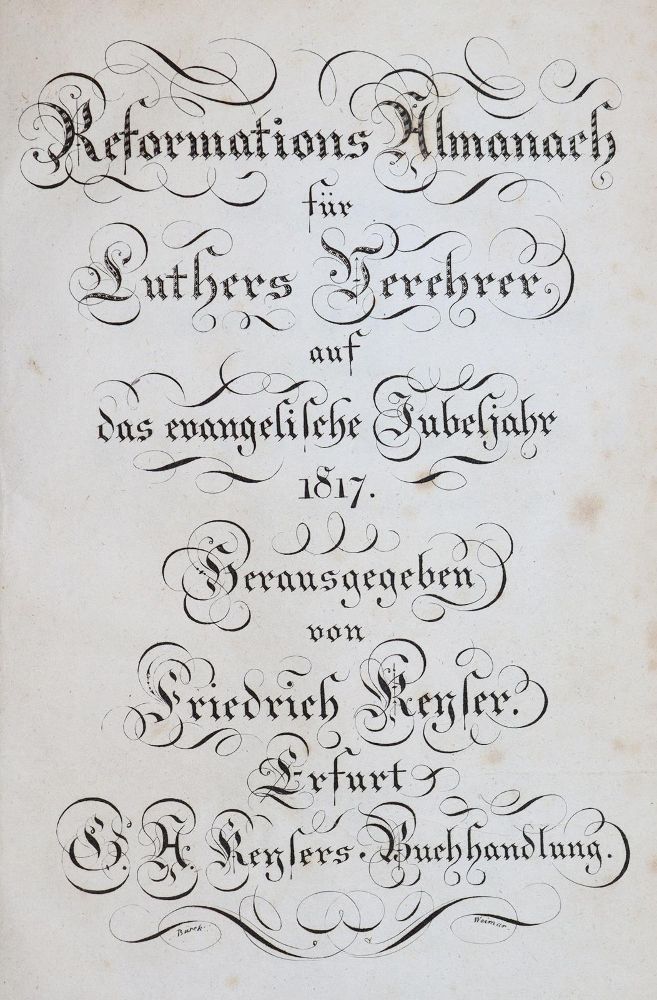 Reformations Almanach
für
Luthers Verehrer
auf
das evangelische Jubeljahr
1817.
Herausgegeben
von
Friedrich Keyser.
Erfurt
G. A. Keysers Buchhandlung.
Weimar.